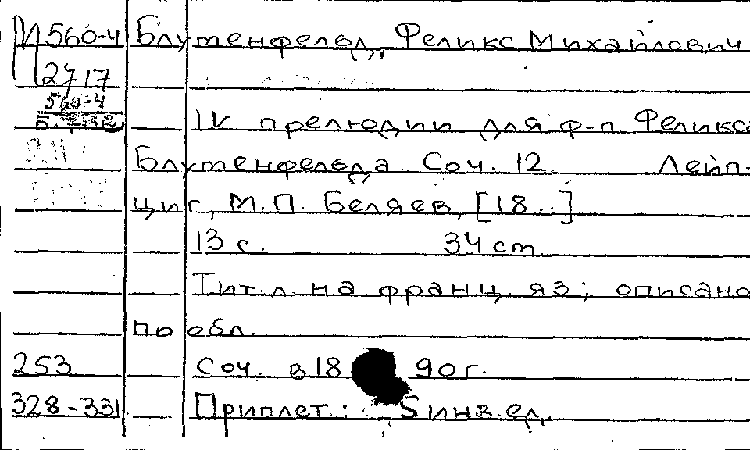 И560-4 Блуменфельд, Феликс Михайлович
2717
560-4
IV прелюдии для ф-п Феликса
Блуменфельда Соч. 12. Лейп-
циг, М.П. Беляев, [18..]
13 с. 34 cm
Тит. л. на франц. яз; описано
по обл.
253 Соч. в 18 90 г.
328-331 Приплет.: 5 инв. ед.